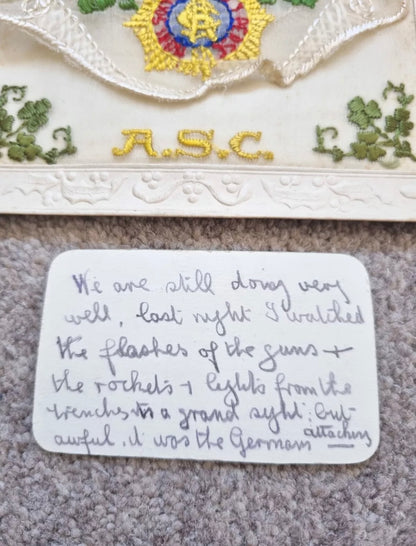 A.S.C.
We are still doing very
well, last night I watched
the flashes of the guns +
the rockets + lights from the
trenches a grand sight, but
awful, it was the Germans attacking